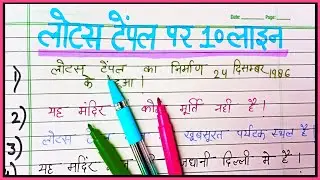 Date: Page:
लोटस टेंपल पर 10 लाइन
1) लोटस टेंपल का निर्माण 24 दिसम्बर 1986
के
2) यह मंदिर कोई मूर्ति नही है ।
3) लोटस खूबसूरत पर्यटक स्थल है ।
4) यह मदिर राजधानी दिल्ली मे है ।